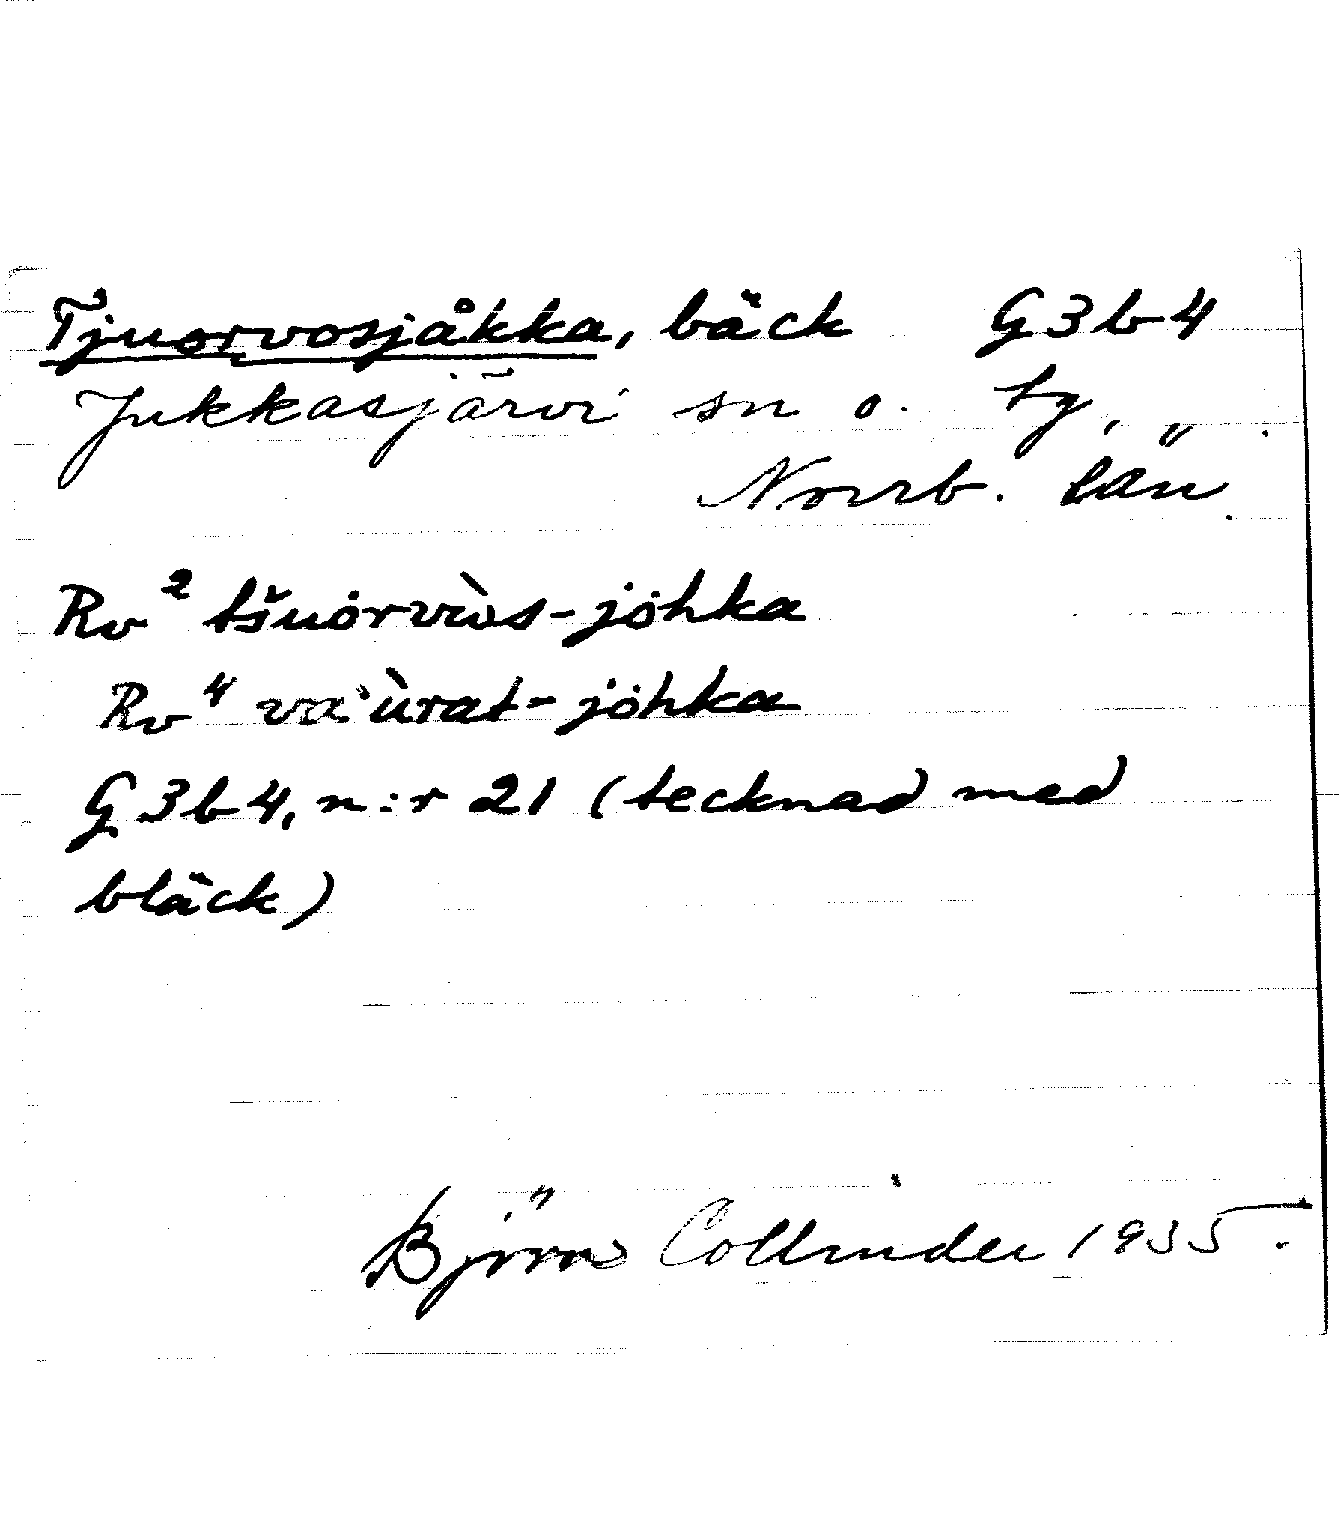 Tjuorvosjåkka, bäck G3b4
Jukkasjärvi sn o. tg,
Norrb. län.
Rv² tšuȯrvùs-jȯhka
Rv⁴ va`ùrat-jȯhka
G3b4, n:r 21 (tecknad med
bläck)
Björn Collinder 1935.